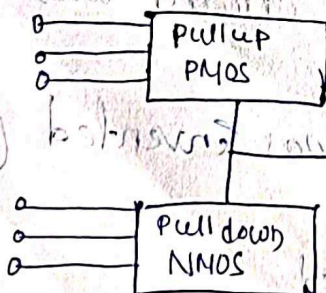 Pull up
PMOS
Pull down
NMOS